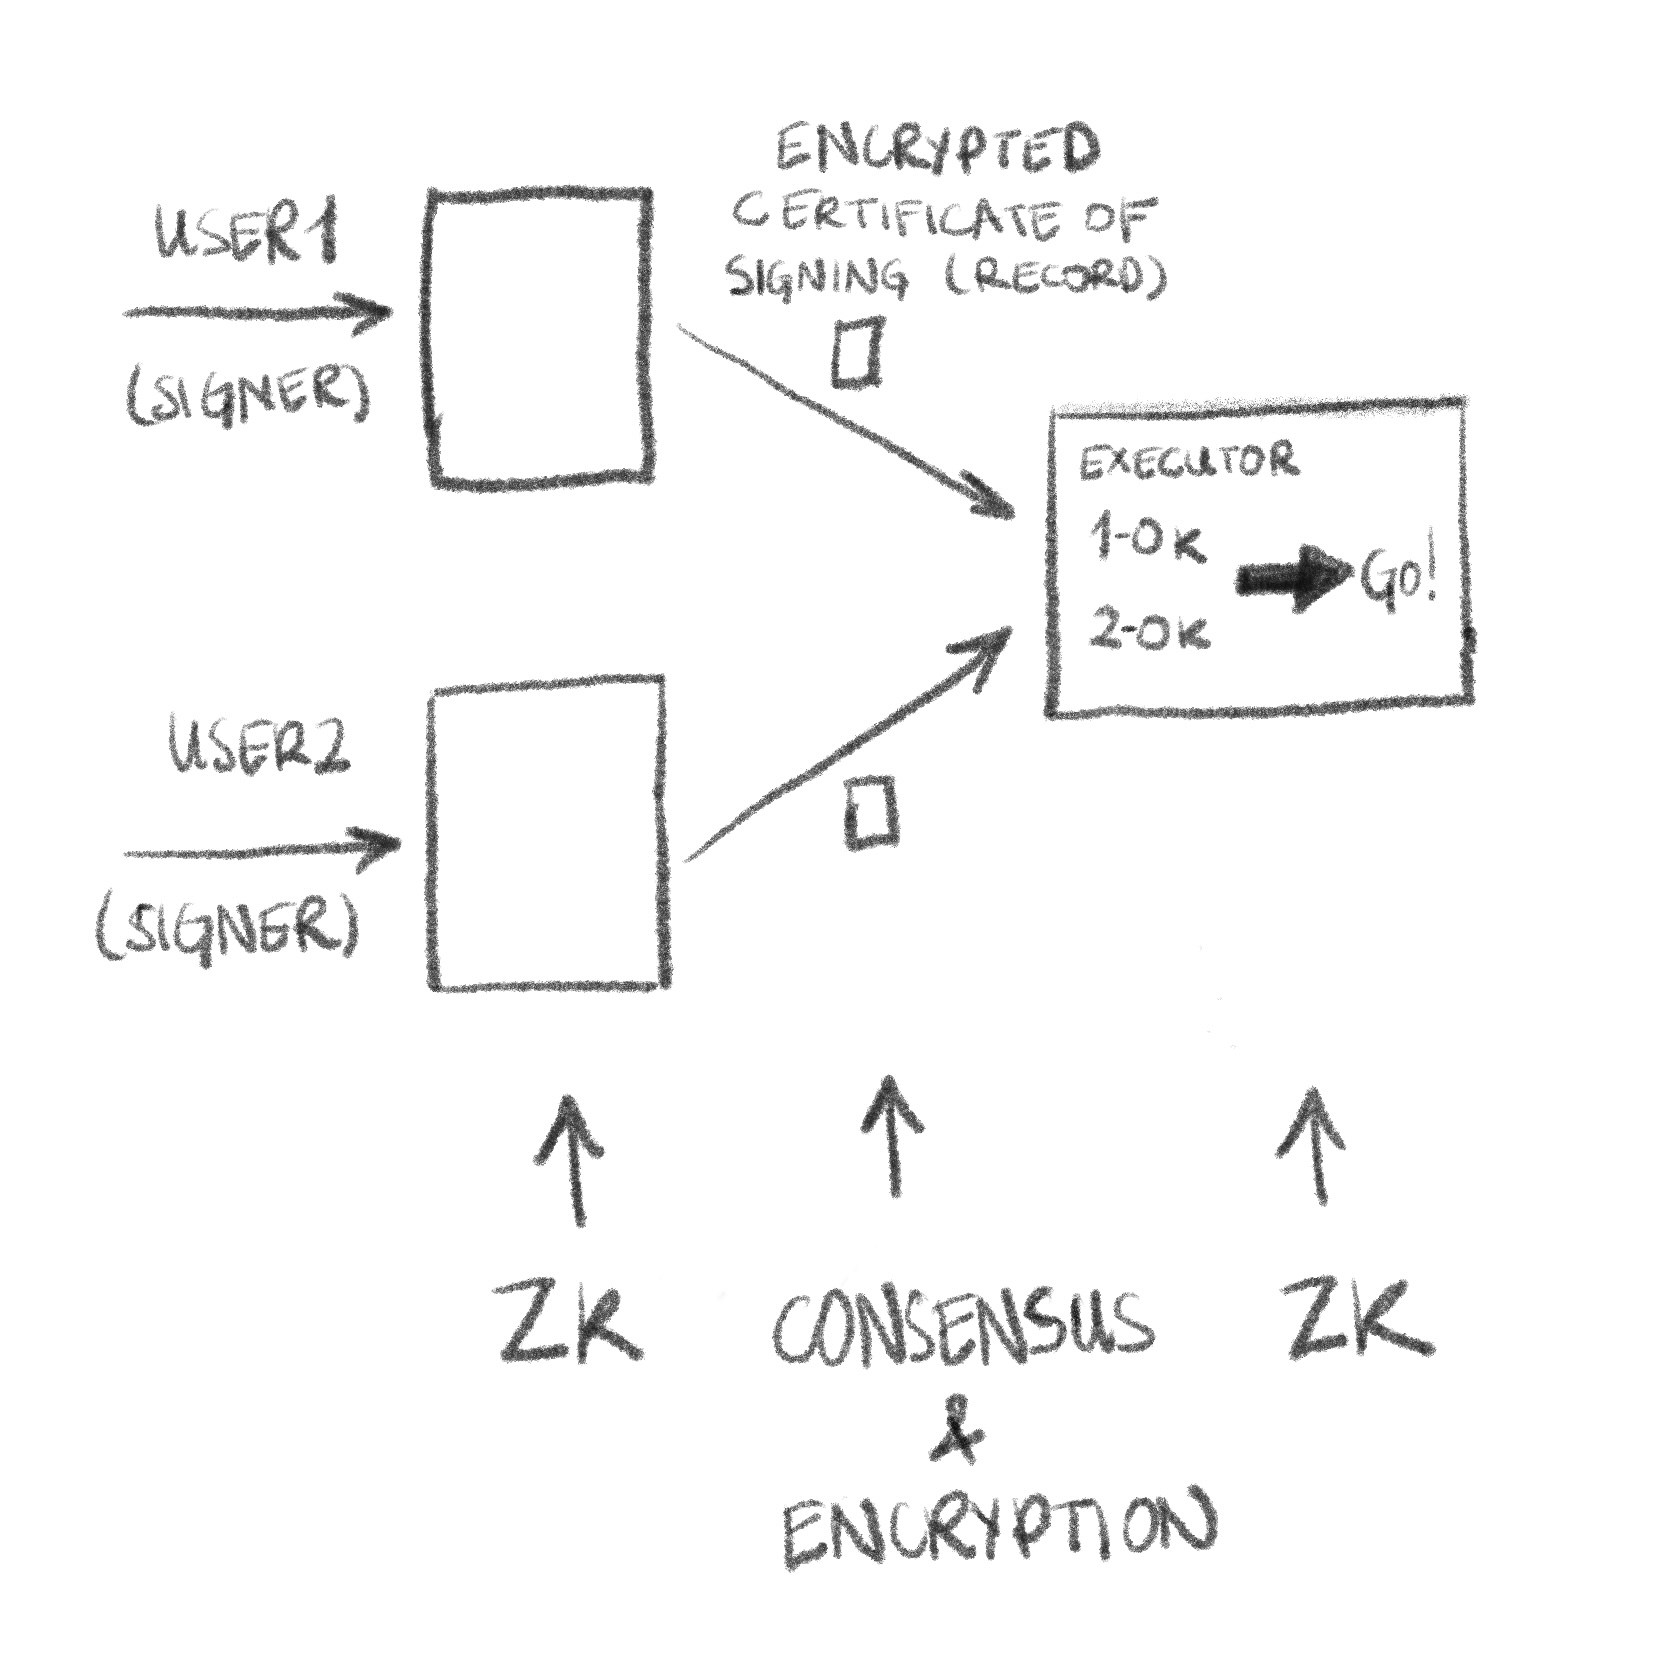 USER1
(SIGNER)
ENCRYPTED
CERTIFICATE OF
SIGNING (RECORD)
EXECUTOR
1-OK
2-OK
GO!
USER2
(SIGNER)
ZK
CONSENSUS
&
ENCRYPTION
ZK